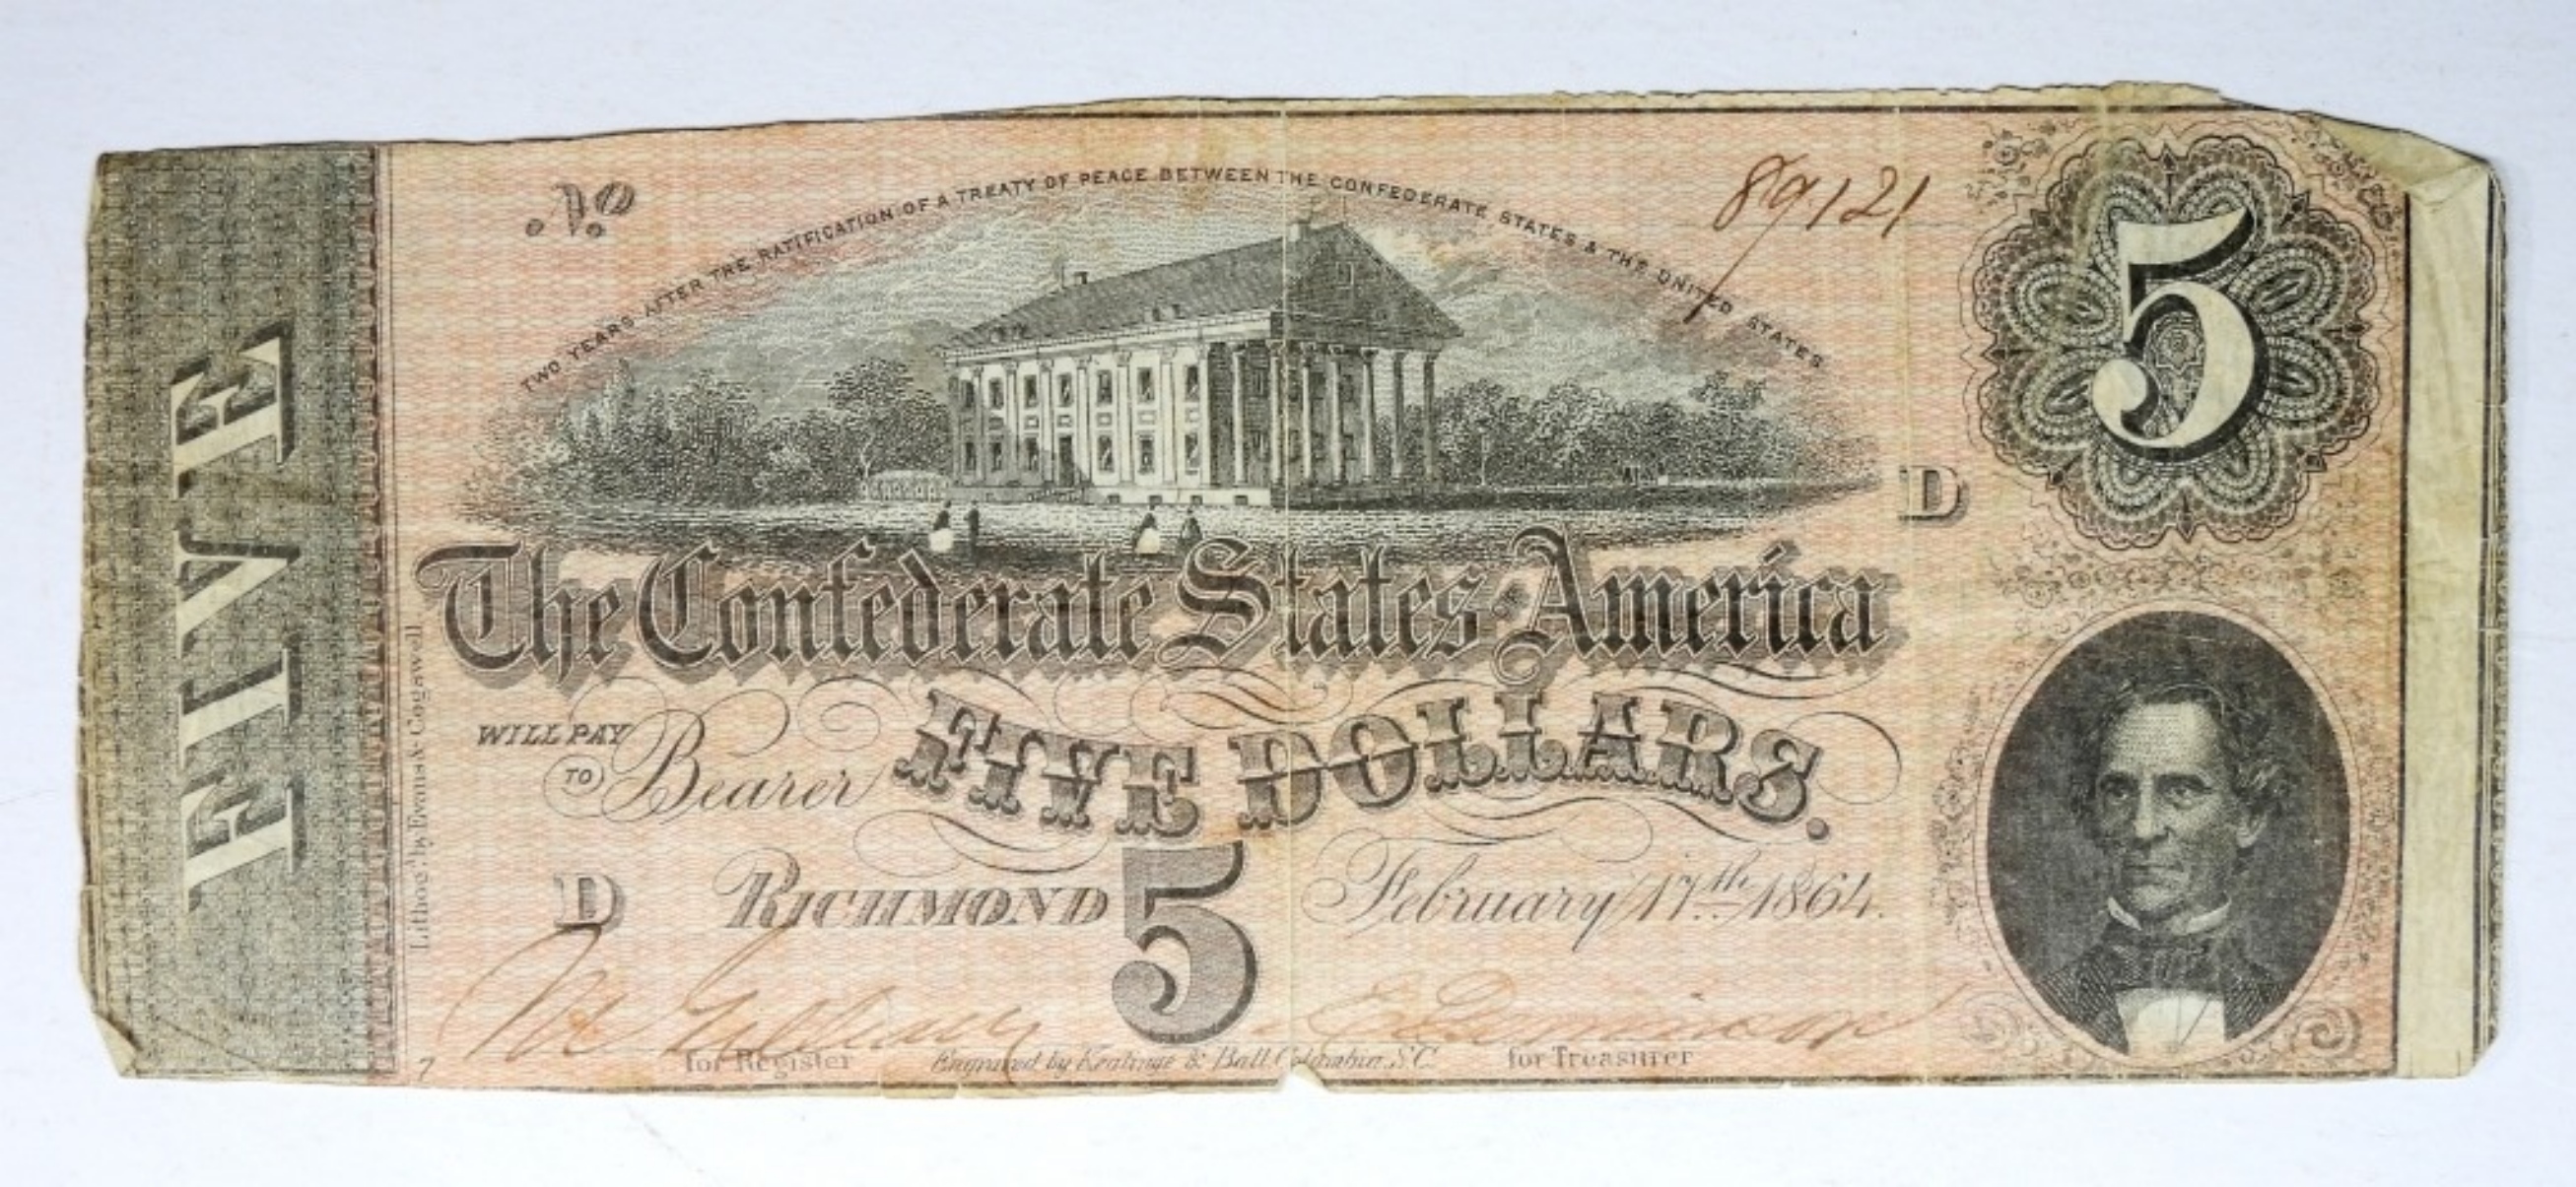 No 89121
TWO YEARS AFTER THE RATIFICATION OF A TREATY OF PEACE BETWEEN THE CONFEDERATE STATES & THE UNITED STATES
5
FIVE
D
The Confederate States of America
WILL PAY
TO Bearer FIVE DOLLARS.
D RICHMOND 5 February 17th 1864.
Lithog'd by Evans & Cogswell
for Register
Engraved by Keatinge & Ball Columbia, S.C.
for Treasurer
7